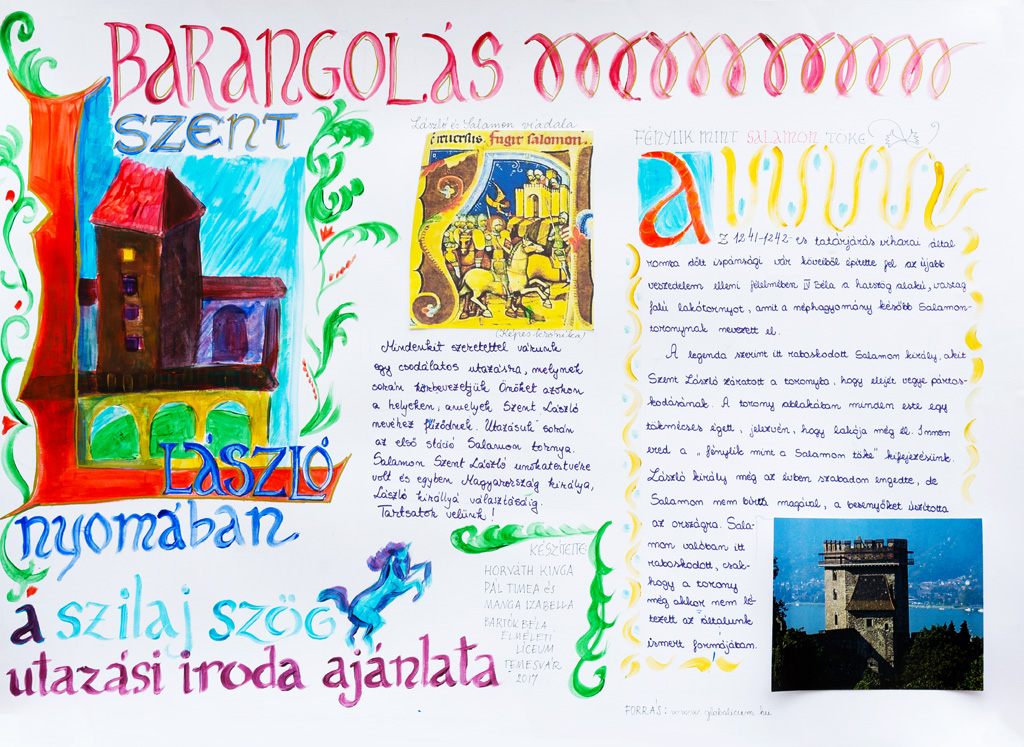 BARANGOLÁS
SZENT
LÁSZLÓ
nyomában
a szilaj szög
utazási iroda ajánlata
László és Salamon viadala
fugit salomon.
(Képes krónika)
Mindenkit szeretettel várunk
egy csodálatos utazásra, melynek
során körbevezetjük Önöket azokon
a helyeken, amelyek Szent László
nevéhez fűződnek. Utazásuk során
az első stáció Salamon tornya.
Salamon Szent László unokatestvére
volt és egyben Magyarország királya,
László királlyá választásáig.
Tartsatok velünk!
KÉSZÍTETTE:
HORVÁTH KINGA
PÁL TIMEA és
MANGA IZABELLA
BARTÓK BÉLA
ELMÉLETI
LÍCEUM
TEMESVÁR
2017
FÉNYLIK MINT SALAMON TÖKE
A
Z 1241-1242-es tatárjárás viharai által
romba dőlt ispánsági vár köveiből építette fel az újabb
veszedelem elleni félelmében IV Béla a hatszög alakú, vastag
falú lakótornyot, amit a néphagyomány később Salamon-
toronynak nevezett el.
A legenda szerint itt raboskodott Salamon király, akit
Szent László záratott a toronyba, hogy elejét vegye pártos-
kodásának. A torony ablakában minden este egy
tökmécses égett, jelezvén, hogy lakója még él. Innen
ered a „fénylik mint a Salamon töke" kifejezésünk.
László király még az évben szabadon engedte, de
Salamon nem bírta magával, a besenyőket úszította
az országra. Sala-
mon valóban itt
raboskodott, csak-
hogy a torony
még akkor nem lé-
tezett az általunk
ismert formájában.
FORRÁS: www.globalicum.hu